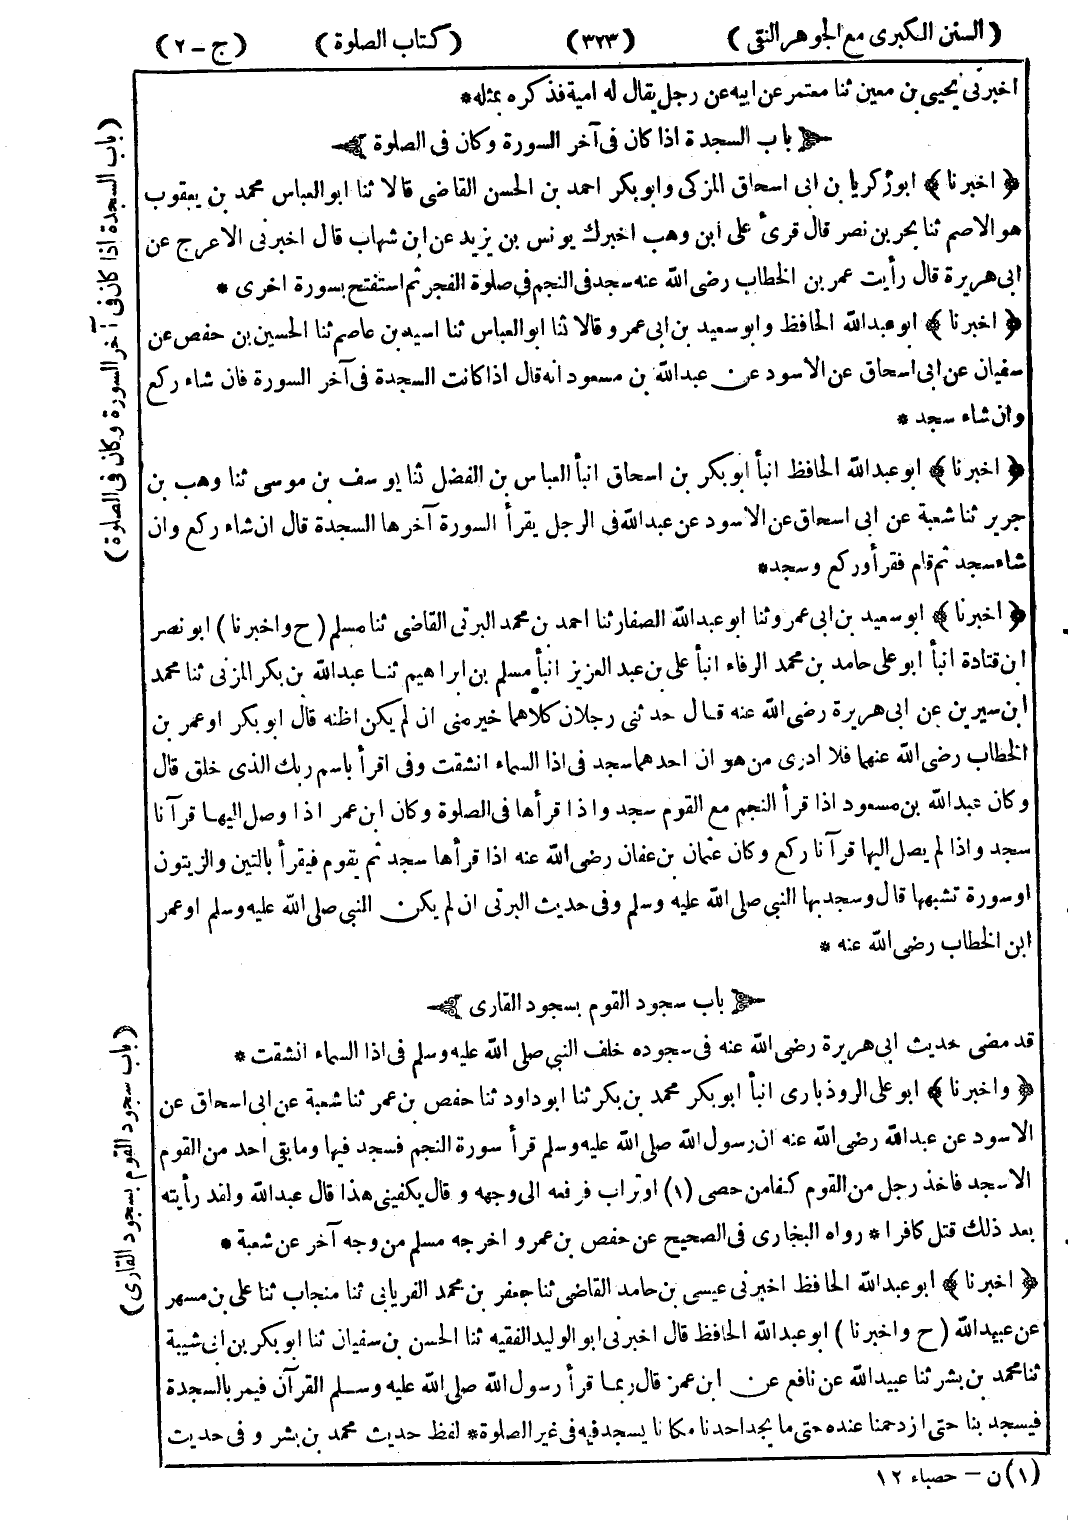 ( السنن الكبرى مع الجوهر النقى ) ( ٣٢٣ ) ( كتاب الصلوة ) ( ج - ٢ )
اخبرنى يحيى بن معين ثنا معتمر عن ابيه عن رجل يقال له امية فذكره بمثله*
باب السجدة اذا كان فى آخر السورة وكان فى الصلوة
﴿ اخبرنا ﴾ ابو زكريا بن ابى اسحاق المزكى وابو بكر احمد بن الحسن القاضى قالا ثنا ابو العباس محمد بن يعقوب
هو الاصم ثنا بحر بن نصر قال قرئ على ابن وهب اخبرك يونس بن يزيد عن ابن شهاب قال اخبرنى الاعرج عن
ابى هريرة قال رأيت عمر بن الخطاب رضى الله عنه سجد فى النجم فى صلوة الفجر ثم استفتح بسورة اخرى *
﴿ اخبرنا ﴾ ابو عبد الله الحافظ وابو سعيد بن ابى عمرو قالا ثنا ابو العباس ثنا اسيد بن عاصم ثنا الحسين بن حفص عن
سفيان عن ابى اسحاق عن الاسود عن عبد الله بن مسعود انه قال اذا كانت السجدة فى آخر السورة فان شاء ركع
وان شاء سجد *
﴿ اخبرنا ﴾ ابو عبد الله الحافظ انبأ ابو بكر بن اسحاق انبأ العباس بن الفضل ثنا يوسف بن موسى ثنا وهب بن
جرير ثنا شعبة عن ابى اسحاق عن الاسود عن عبد الله فى الرجل يقرأ السورة آخرها السجدة قال ان شاء ركع وان
شاء سجد ثم قام فقرأ وركع وسجد*
﴿ اخبرنا ﴾ ابو سعيد بن ابى عمرو ثنا ابو عبد الله الصفار ثنا احمد بن محمد البرتى القاضى ثنا مسلم ( ح واخبرنا ) ابو نصر
ابن قتادة انبأ ابو على حامد بن محمد الرفاء انبأ على بن عبد العزيز انبأ مسلم بن ابراهيم ثنا عبد الله بن بكر المزنى ثنا محمد
ابن سيرين عن ابى هريرة رضى الله عنه قال حدثنى رجلان كلاهما خير منى ان لم يكن اظنه قال ابو بكر او عمر بن
الخطاب رضى الله عنهما فلا ادرى من هو ان احدهما سجد فى اذا السماء انشقت وفى اقرأ باسم ربك الذى خلق قال
وكان عبد الله بن مسعود اذا قرأ النجم مع القوم سجد واذا قرأها فى الصلوة وكان ابن عمر اذا وصل اليها قرآنا
سجد واذا لم يصل اليها قرآنا ركع وكان عثمان بن عفان رضى الله عنه اذا قرأها سجد ثم يقوم فيقرأ بالتين والزيتون
او سورة تشبهها قال وسجد بها النبى صلى الله عليه وسلم وفى حديث البرتى ان لم يكن النبى صلى الله عليه وسلم او عمر
ابن الخطاب رضى الله عنه *
باب سجود القوم بسجود القارى
قد مضى حديث ابى هريرة رضى الله عنه فى سجوده خلف النبى صلى الله عليه وسلم فى اذا السماء انشقت *
﴿ واخبرنا ﴾ ابو على الروذبارى انبأ ابو بكر محمد بن بكر ثنا ابو داود ثنا حفص بن عمر ثنا شعبة عن ابى اسحاق عن
الاسود عن عبد الله رضى الله عنه ان رسول الله صلى الله عليه وسلم قرأ سورة النجم فسجد فيها وما بقى احد من القوم
الا سجد فاخذ رجل من القوم كفا من حصى (١) او تراب فرفعه الى وجهه وقال يكفينى هذا قال عبد الله ولقد رأيته
بعد ذلك قتل كافرا * رواه البخارى فى الصحيح عن حفص بن عمر واخرجه مسلم من وجه آخر عن شعبة *
﴿ اخبرنا ﴾ ابو عبد الله الحافظ اخبرنى عيسى بن حامد القاضى ثنا جعفر بن محمد الفريابى ثنا منجاب ثنا على بن مسهر
عن عبيد الله ( ح واخبرنا ) ابو عبد الله الحافظ قال اخبرنى ابو الوليد الفقيه ثنا الحسن بن سفيان ثنا ابو بكر بن ابى شيبة
ثنا محمد بن بشر ثنا عبيد الله عن نافع عن ابن عمر قال ربما قرأ رسول الله صلى الله عليه وسلم القرآن فيمر بالسجدة
فيسجد بنا حتى ازدحمنا عنده حتى ما يجد احدنا مكانا يسجد فيه فى غير الصلوة* لفظ حديث محمد بن بشر وفى حديث
(١) ن - حصباء ١٢
( باب السجدة اذا كان فى آخر السورة وكان فى الصلوة )
( باب سجود القوم بسجود القارى )